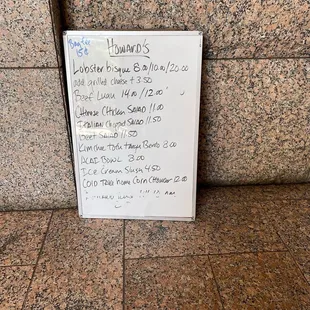 Howard's
Lobster bisque 8.00/10.00/20.00
add grilled cheese + 3.50
Beef Luau 14.00/12.00
Chinese Chicken Salad 11.00
Italian Chopped Salad 11.50
Beet Salad 11.50
Kim chee tofu
Bomb 8.00
Acai Bowl 8.00
Ice Cream Slush 4.50
Cold Tofu
Corn Chowder 12.00